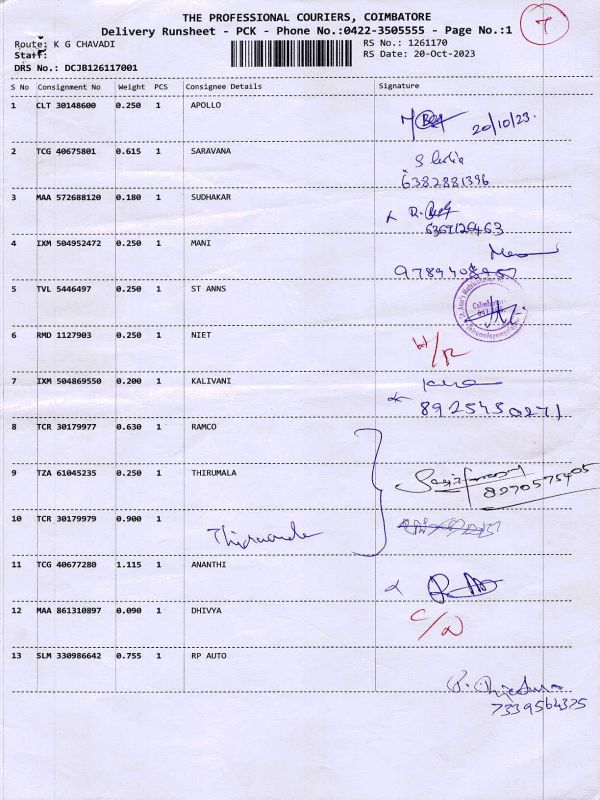 THE PROFESSIONAL COURIERS, COIMBATORE
7
Delivery Runsheet - PCK - Phone No.:0422-3505555 - Page No.:1
Route: K G CHAVADI
RS No.: 1261170
Staff:
RS Date: 20-Oct-2023
DRS No.: DCJB126117001
S No Consignment No Weight PCS Consignee Details Signature
1 CLT 30148600 0.250 1 APOLLO
20/10/23.
2 TCG 40675801 0.615 1 SARAVANA
6382881396
3 MAA 572688120 0.180 1 SUDHAKAR
4 IXM 504952472 0.250 1 MANI
5 TVL 5446497 0.250 1 ST ANNS
6 RMD 1127903 0.250 1 NIET
7 IXM 504869550 0.200 1 KALIVANI
8925450271
8 TCR 30179977 0.630 1 RAMCO
9 TZA 61045235 0.250 1 THIRUMALA
8270575405
10 TCR 30179979 0.900 1
11 TCG 40677280 1.115 1 ANANTHI
12 MAA 861310897 0.090 1 DHIVYA
13 SLM 330986642 0.755 1 RP AUTO
7339564375